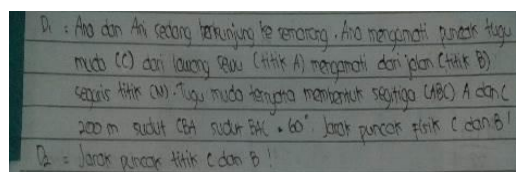 D1 : Ana dan Ani sedang berkunjung ke semarang. Ana mengamati puncak tugu
muda (C) dari lawang sewu (titik A) mengamati dari jalan (titik B)
segaris titik (M). Tugu muda ternyata membentuk segitiga (ABC) A dan C
200 m sudut CBA sudut BAC = 60° Jarak puncak C dan B!
D2 = Jarak puncak titik C dan B!